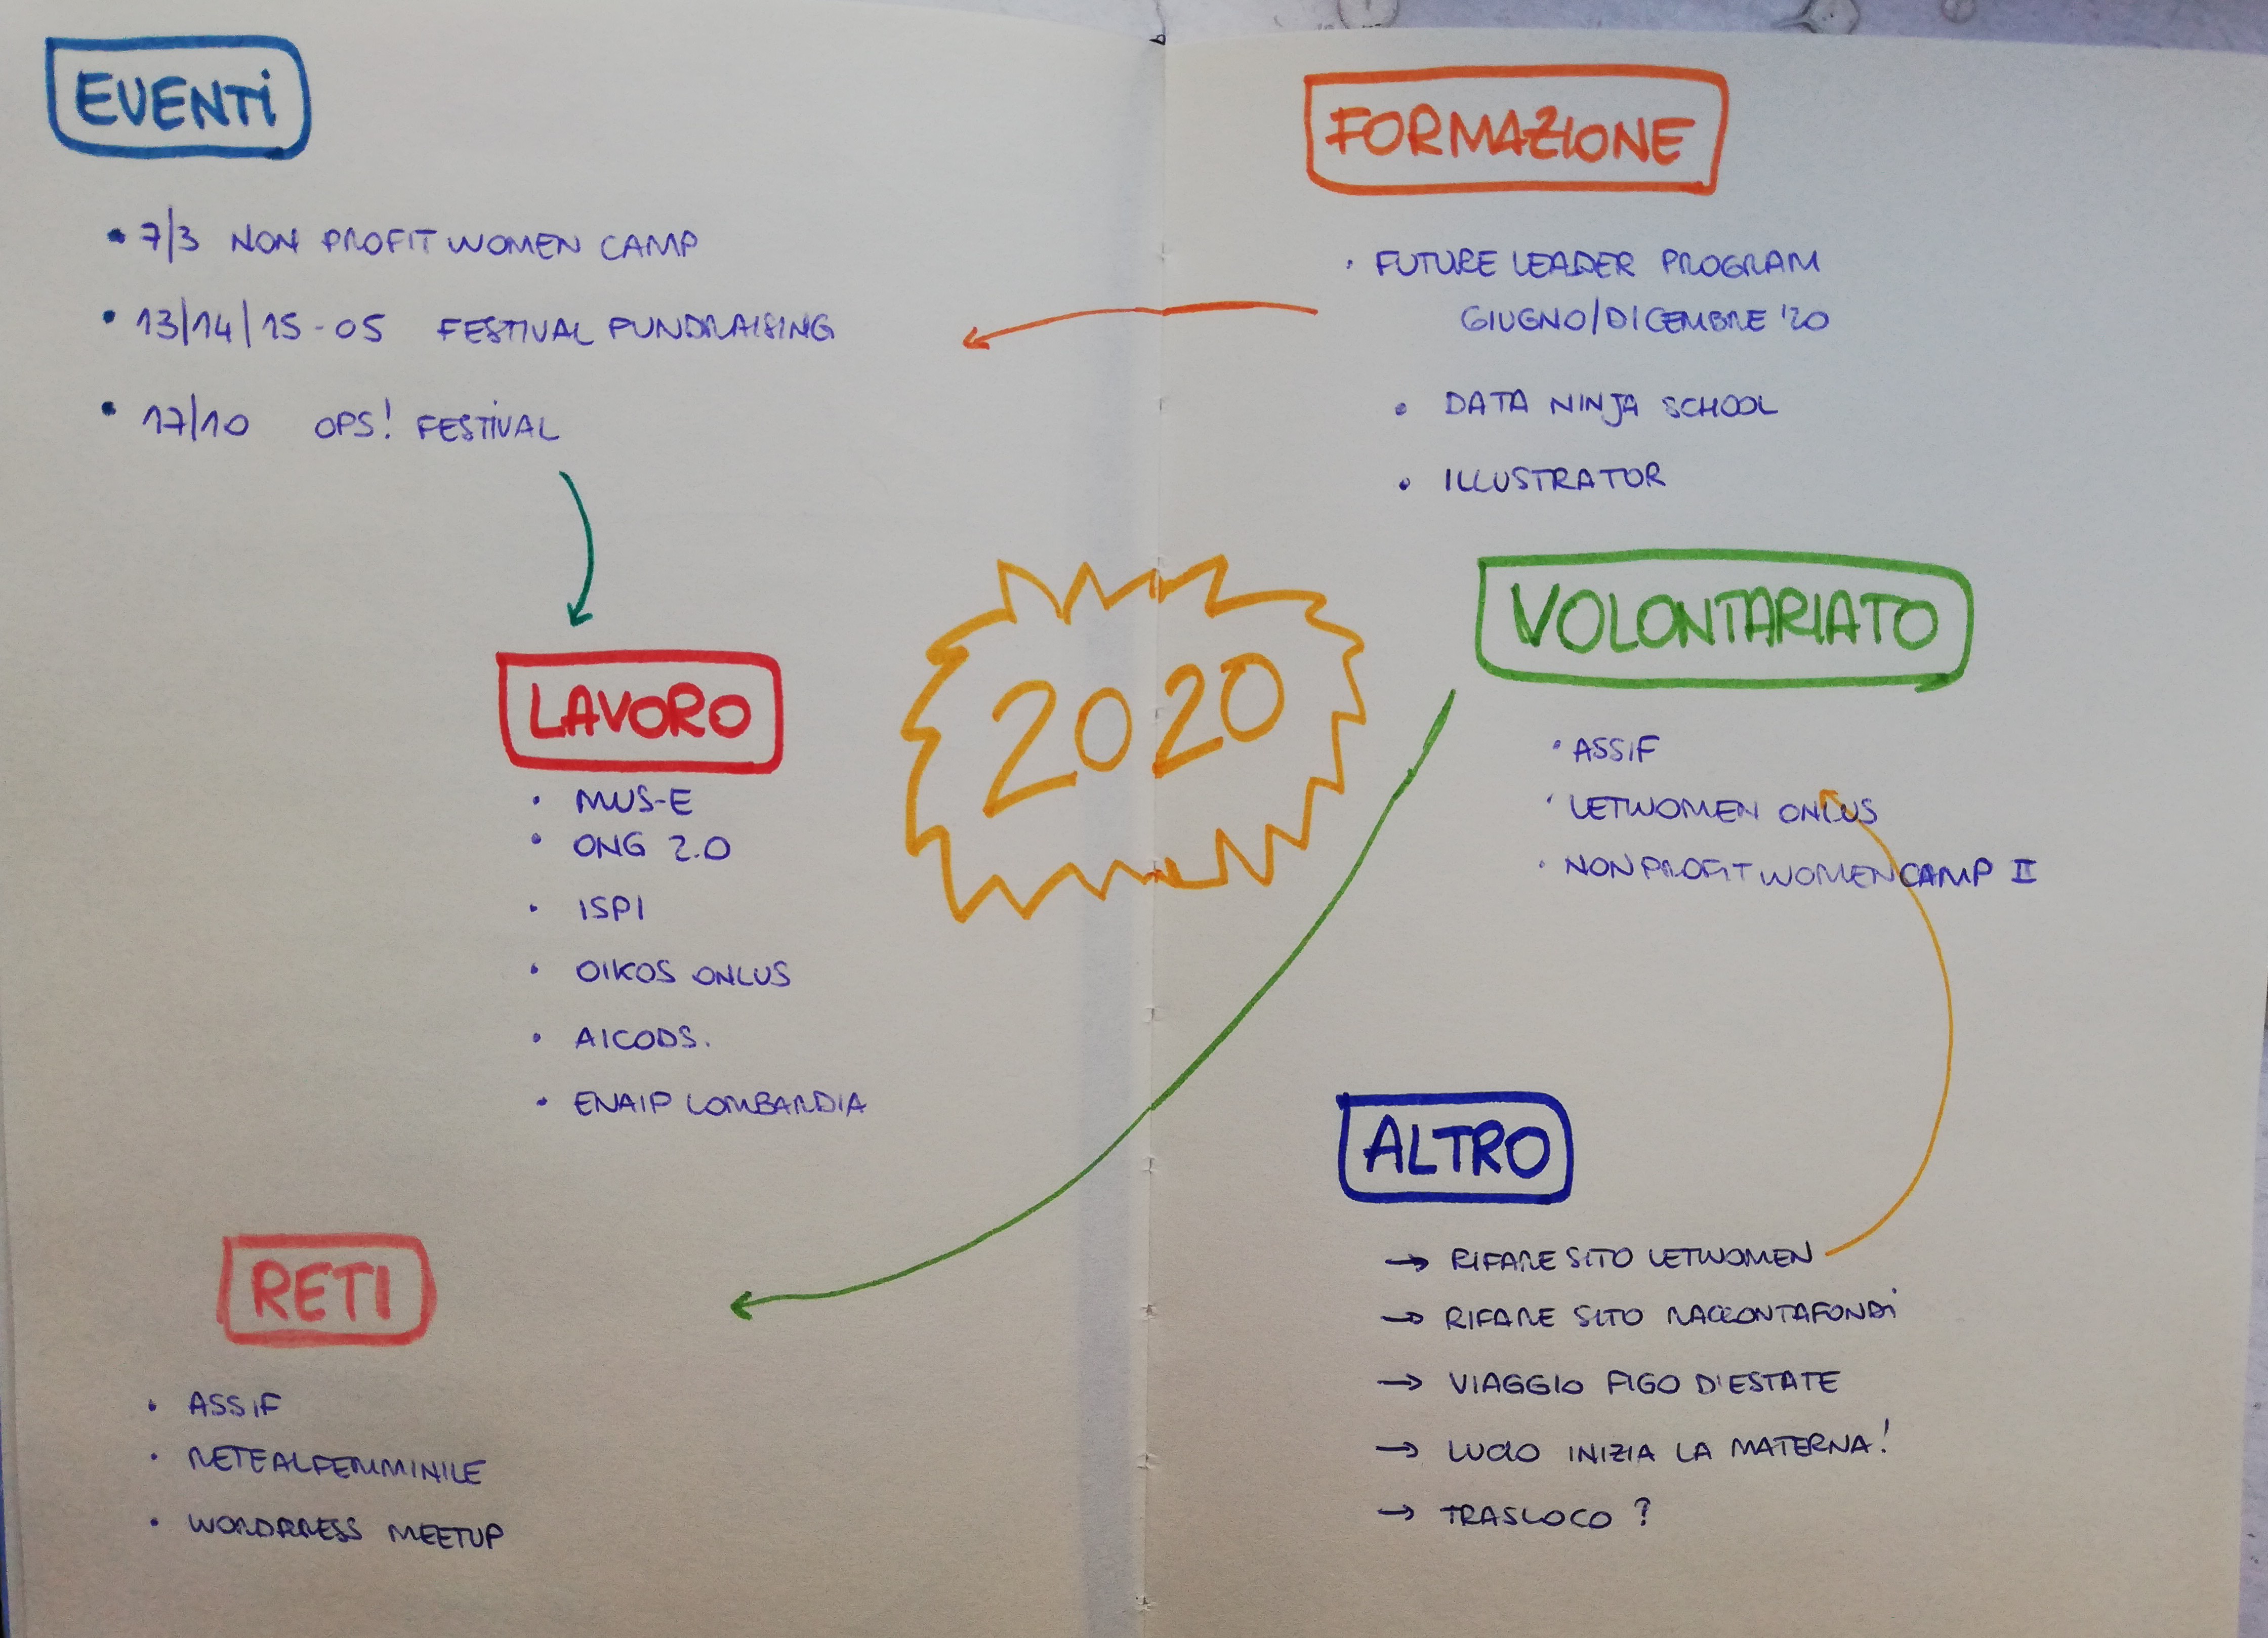 EVENTI
• 7/3 NON PROFIT WOMEN CAMP
• 13/14/15-05 FESTIVAL FUNDRAISING
• 17/10 OPS! FESTIVAL
LAVORO
• MUS-E
• ONG 2.0
• ISPI
• OIKOS ONLUS
• AICODS.
• ENAIP LOMBARDIA
RETI
• ASSIF
• RETEALFEMMINILE
• WORDPRESS MEETUP
2020
FORMAZIONE
• FUTURE LEADER PROGRAM
GIUGNO/DICEMBRE '20
• DATA NINJA SCHOOL
• ILLUSTRATOR
VOLONTARIATO
• ASSIF
• LETWOMEN ONLUS
• NONPROFITWOMENCAMP II
ALTRO
→ RIFARE SITO LETWOMEN
→ RIFARE SITO RACCONTAFONDI
→ VIAGGIO FIGO D'ESTATE
→ LUCIO INIZIA LA MATERNA!
→ TRASLOCO ?